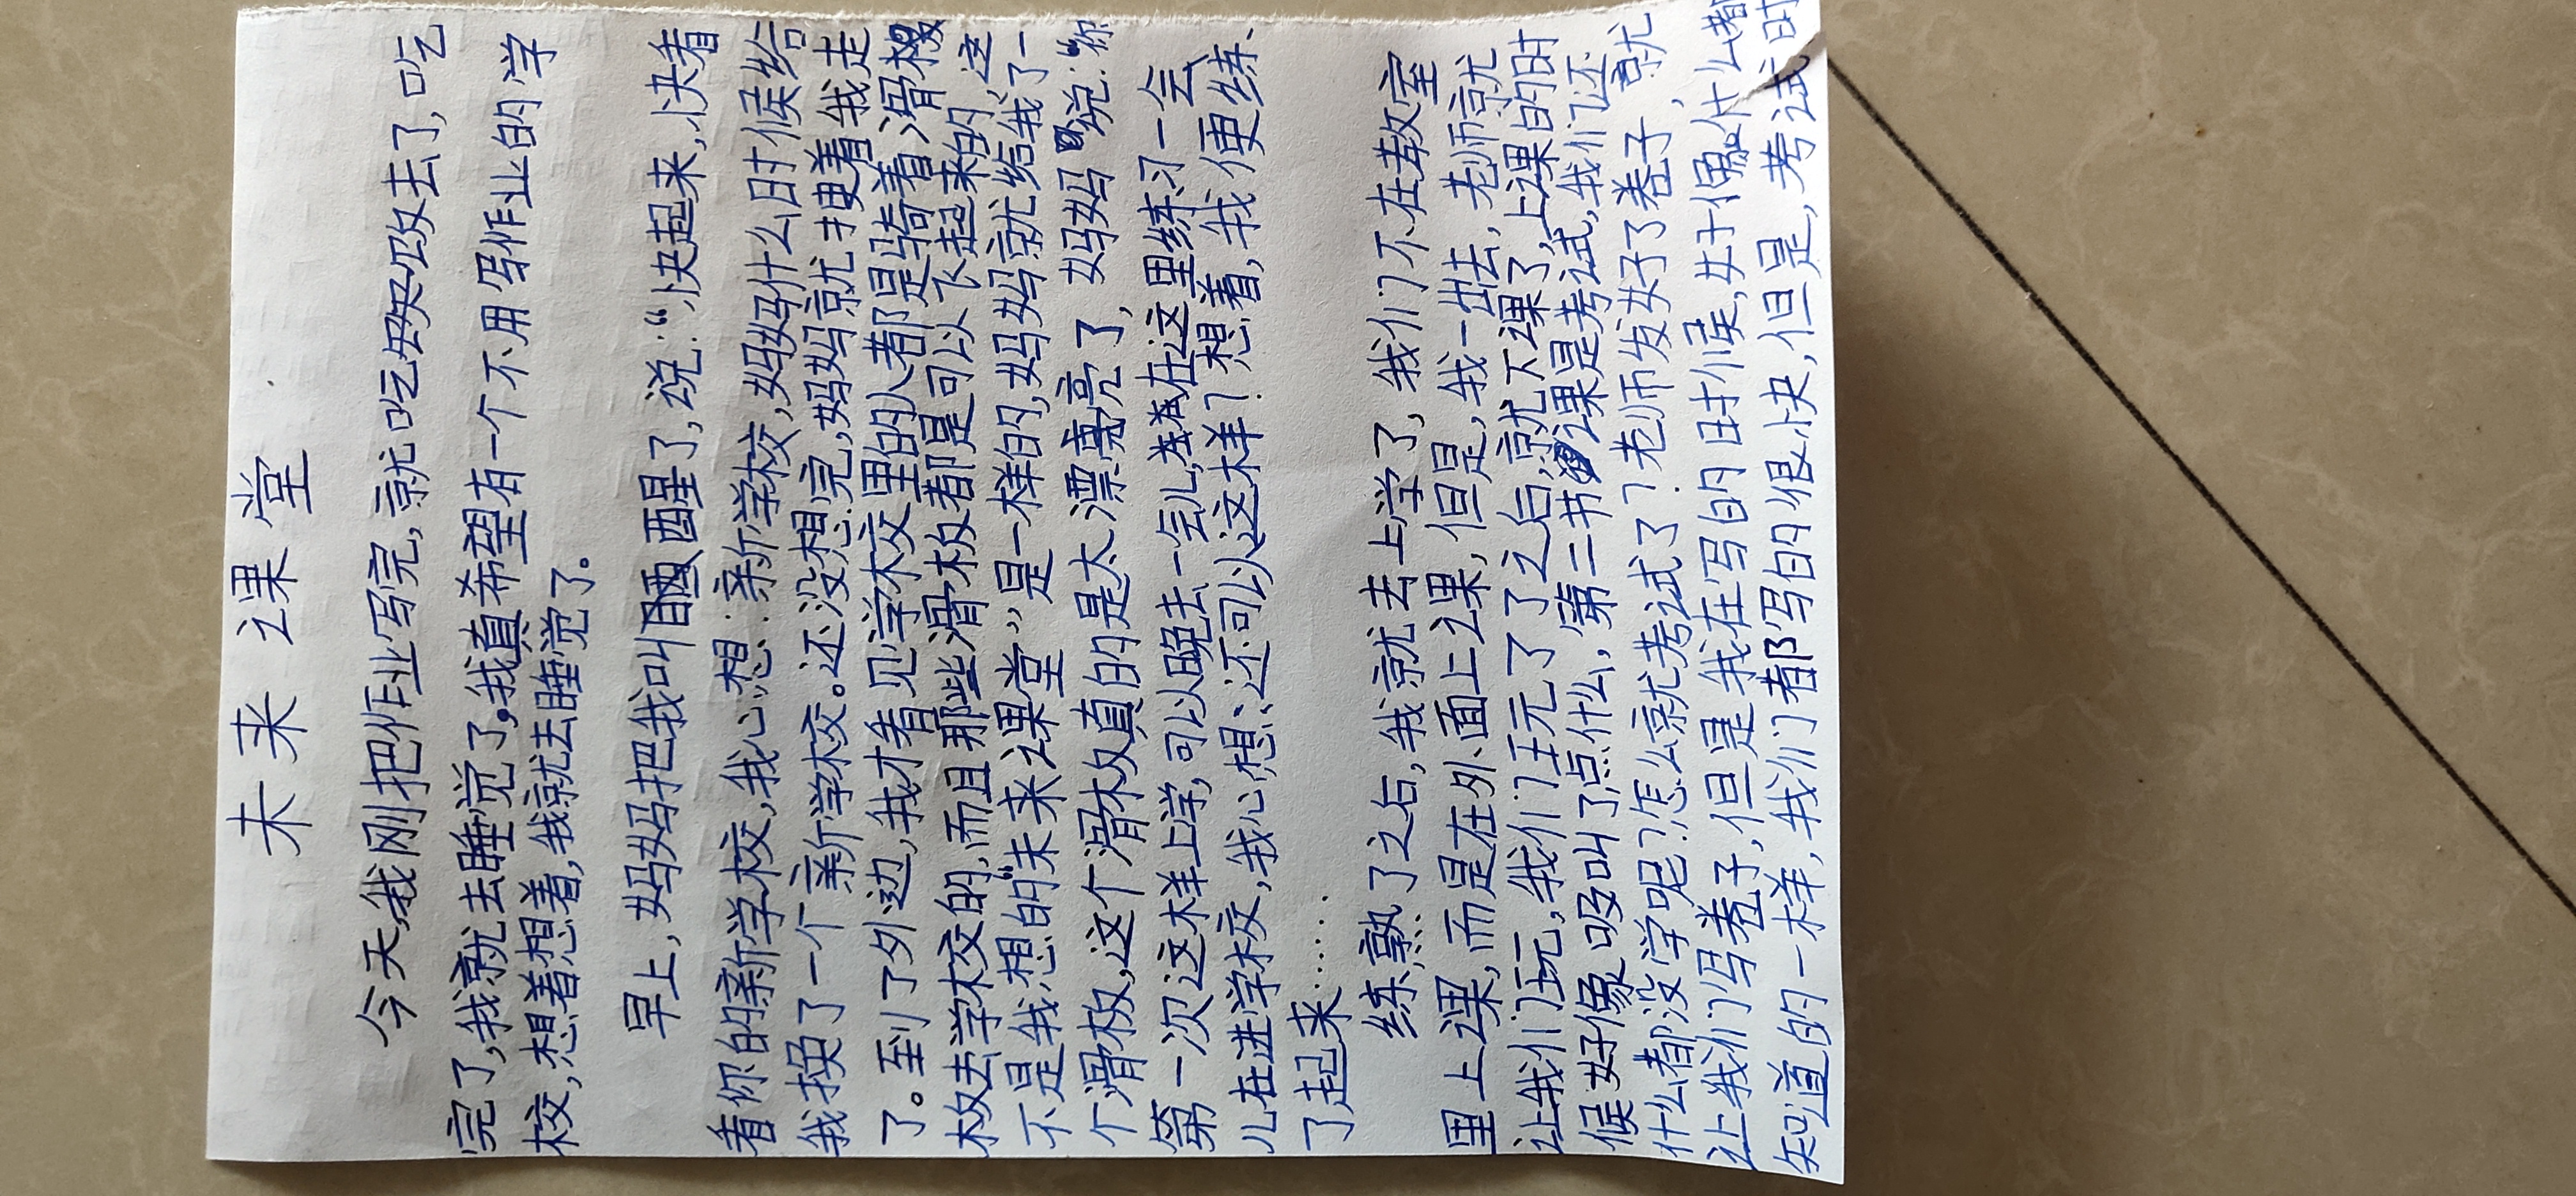 未来课堂
今天,我刚把作业写完,就吃去了,吃
完了,我就去睡觉了。我真希望有一个不用写作业的学
校,想着想着,我就去睡觉了。
早上,妈妈把我叫醒了,说:“快起来,快看
看你的新学校,我心想:新学校,妈妈什么时候给
我换了一个新学校。还没想完,妈妈就搜着我走
了。到了外边,我才看见学校里的人都是骑着滑板
板去学校的,而且那些滑板都是可以飞起来的,这
不是我想的“未来课堂”是一样的,妈妈就给我了一
个滑板,这个滑板真的是太漂亮了,妈妈说:“你
第一次这样上学,可以晚去一会儿,在这里练习一会
儿在进学校,我心想:还可以这样?想着,我便练
了起来……
练熟了之后,我就去上学了,我们不在教室
里上课,而是在外面上课,但是,我一出去,老师就
让我们玩,我们玩了了之后,就下课了,上课的时
候好像吸叫了点什么,第二节课是考试,我们还
什么都没学呢?怎么就考试了?老师发好了卷子,就
让我们写卷子,但是我在写的时候,好像什么都
知道的一样,我们都写的很快,但是,考试时